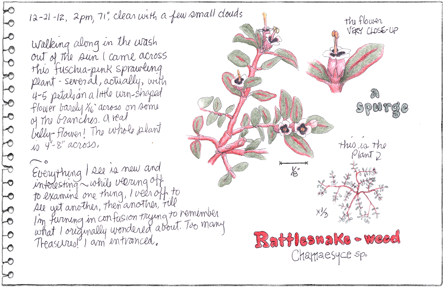 12-21-12, 2pm, 71°, clear with a few small clouds
Walking along in the wash
out of the sun I came across
this fuschia-pink sprawling
plant - several, actually, with
4-5 petals in a little urn-shaped
flower barely 1/16" across on some
of the branches. A real
belly-flower! The whole plant
is 4"-8" across.
Everything I see is new and
interesting - while veering off
to examine one thing, I veer off to
see yet another, then another, till
I'm turning in confusion trying to remember
what I originally wondered about. Too many
Treasures! I am entranced.
the flower
VERY CLOSE-UP
a
spurge
this is the
Plant
x 1/3
Rattlesnake-weed
Chamaesyce sp.